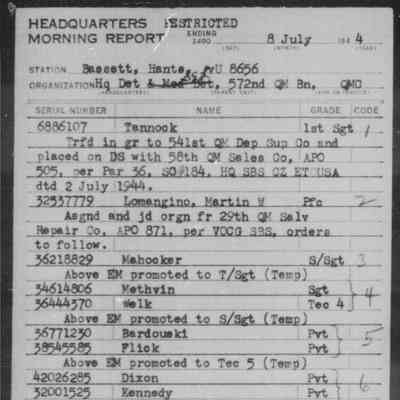 HEADQUARTERS RESTRICTED
MORNING REPORT ENDING 2400 8 July 1944
(DAY) (MONTH) (YEAR)
STATION Bassett, Hants, WU 8656
ORGANIZATION Hq Det & Med Det, 572nd QM Bn, QMC
(HEADQUARTERS) (PARENT UNIT) (ARM OR SERVICE)
SERIAL NUMBER NAME GRADE CODE
6886107 Tannock 1st Sgt 1
Trfd in gr to 541st QM Dep Sup Co and
placed on DS with 58th QM Sales Co, APO
505, per Par 36, SO#184, HQ SBS CZ ETOUSA
dtd 2 July 1944.
32537779 Lomangino, Martin W Pfc 2
Asgnd and jd orgn fr 29th QM Salv
Repair Co, APO 871, per VOCG SBS, orders
to follow.
36218829 Mahocker S/Sgt 3
Above EM promoted to T/Sgt (Temp)
34614806 Methvin Sgt
36444370 Welk Tec 4 4
Above EM promoted to S/Sgt (Temp)
36771230 Bardouski Pvt 5
38545585 Flick Pvt
Above EM promoted to Tec 5 (Temp)
42026285 Dixon Pvt 6
32001525 Kennedy Pvt